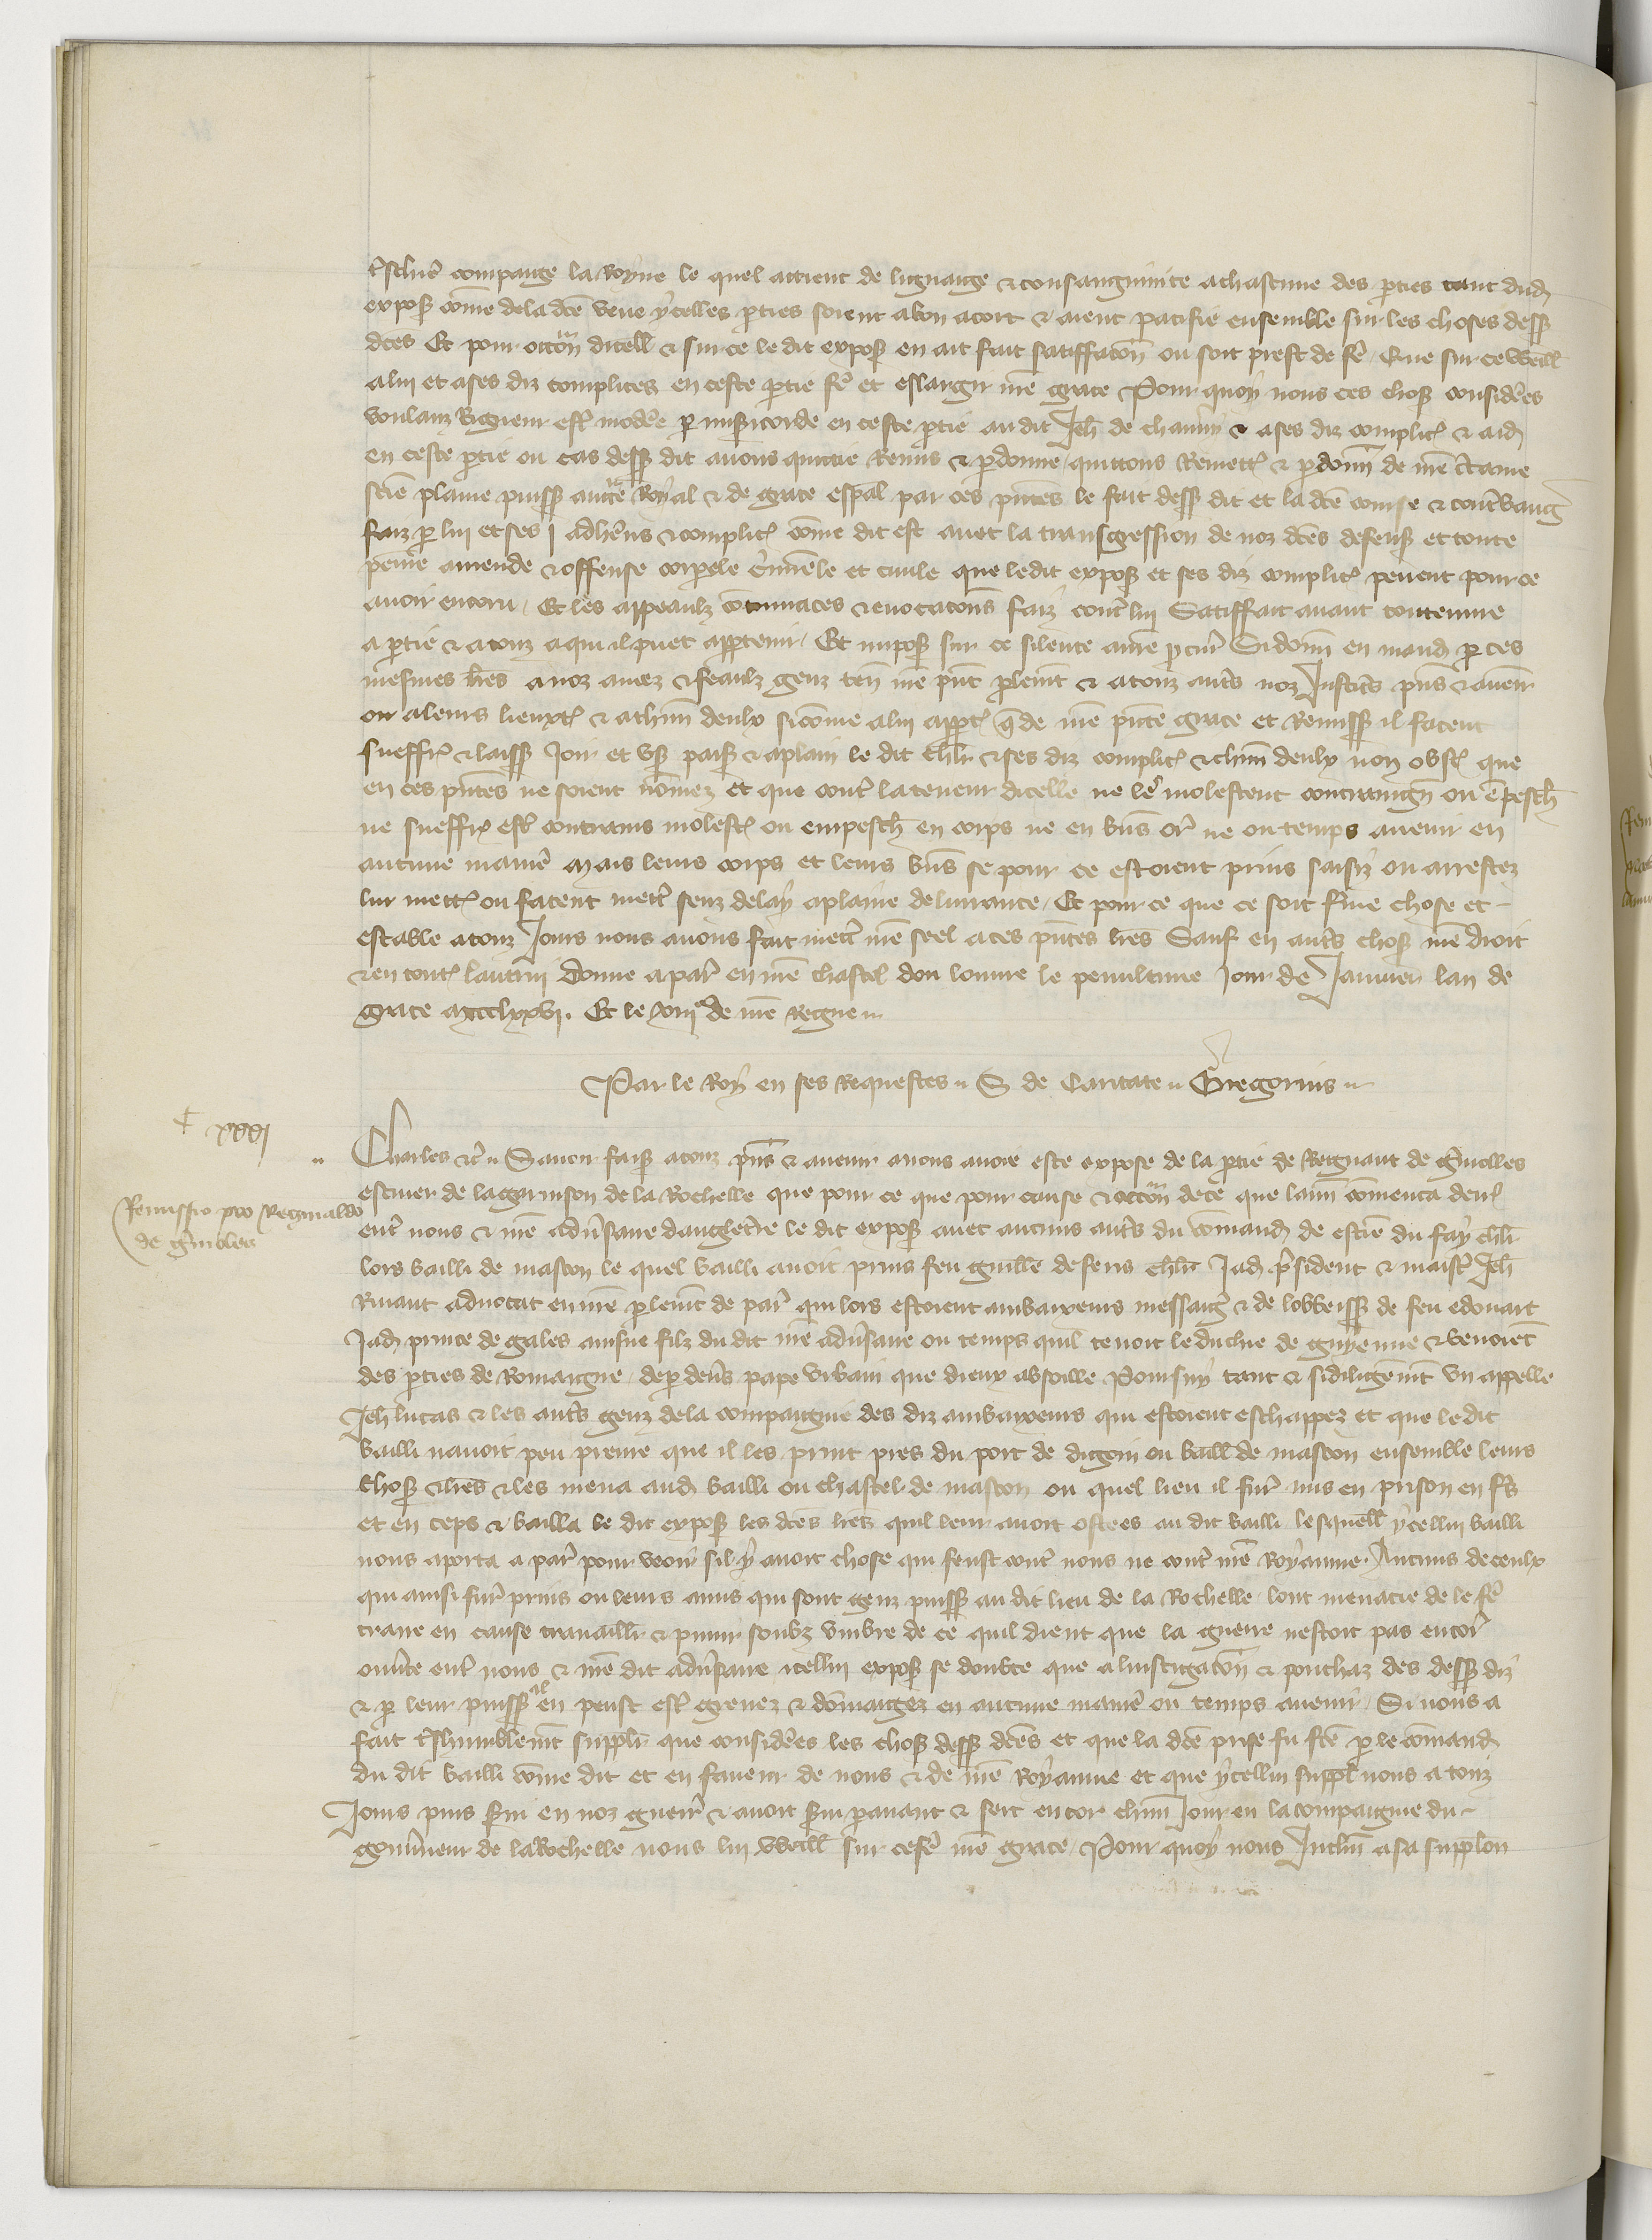 tschiere compaigne la Royne le quel attient de lignaige & consanguinite a chascune des parties tant dud
expos come de la dce veue ycelles parties soient a bon acort & aient pacifie ensemble sur les choses dess
dces Et pour occon dicell & sur ce le dit expos en ait fait satiffacon ou soit prest de fe Que sur ce weill
a lui et a ses diz complices en ceste partie fe et eslargir nre grace Pour quoy nous ces chos consideres
voulanz Rigueur est modere par misericorde en ceste partie au dit Jeh de chauny & a ses diz complices & aid
en ceste partie ou cas dess dit avons quittie Remis & pardonne quittons Remett & pardonn de nre ctaine
scien plaine puiss aucte Royal & de grace espal par ces pntes le fait dess dit et la dce
faiz par lui et ses adherens & complices come dit est avec la transgression de noz dces defens et toute
peine amende & offense corporele criminele et civile que le dit expos et ses diz complices pevent pour ce
avoir encoru Et les appeaulx contumaces & evocacons faiz contre lui Satiffait avant toute euvre
a partie & a touz a qui il puet appartenir Et impos sur ce silence a nre procur Si donn en mand par ces
mesmes lres a noz amez & feaulz genz ten nre pnt parlemt & a touz autres noz Justiciers pns & avenir
ou a leurs lieuxt & a chun deulx si come a lui appt que de nre pnte grace et Remiss il facent
sueffr & laiss Joir et us paisi & aplain le dit chlr & ses diz complices & chun deulx non obst que
en ces pntes ne soient nomez et que contre la teneur dicelle ne les molestent contraingn ou empesch
ne sueffr estre contrains molest ou empesch en corps ne en biens ores ne ou temps avenir en
aucune maniere Mais leurs corps et leurs biens se pour ce estoient prins saisiz ou arrestez
lui mett ou facent mettre senz delay a plaine delivrance Et pour ce que ce soit ferme chose et
estable a touz Jours nous avons fait mettre nre seel a ces pntes lres Sauf en autres chos nre droit
& en tout lautrui Donne a par en nre chastel dou louvre le penultime Jour de Janvier lan de
grace Mccclxxvi. Et le xiiie de nre Regne
Par le Roy en ses Requestes S de Caritate Gregorius
xxxi
Charles &c Savoir fais a touz pns & avenir a nous avoir este expose de la partie de Regnaut de
escuier de la garnison de la Rochelle que pour ce que pour cause & occon de ce que lann comenca
Remissio pro Reginaldo
de
entre nous & nre adversaire dangleterre le dit expos avec aucuns autres du comand de estie du fay chlr
lors bailli de mascon le quel bailli avoit prins feu guille de seris chlr Jad president & maistre Jeh
Rivaut advocat en nre parlemt de par qui lors estoient ambaxeurs messaig & de lobbeiss de feu edouart
Jad prince de gales ainsne filz du dit nre adversaire ou temps quil tenoit le duchie de guyenne & venoiet
des parties de Romaigne de par devers pape urbain que dieux absoille Poursuy tant & si diligemt un appelle
Jeh lucas & les autres genz de la compaignie des diz ambaxeurs qui estoient eschappez et que le dit
bailli navoit peu prenre que il les print pres du port de digoin ou baill de mascon ensemble leurs
chos & lres & les mena aud bailli ou chastel de mascon ou quel lieu il fur mis en prison en fers
et en ceps & bailla le dit expos les dces lres quil leur avoit ostees au dit bailli lesquell ycellui bailli
nous aporta a par pour veoir sil y avoit chose qui feust contre nous ne contre nre Royaume. Aucuns de ceulx
qui ainsi fur prins ou leurs amis qui sont genz puiss au dit lieu de la Rochelle lont menacie de le fe
traire en cause travaill & punir soubz umbre de ce quil dient que la guerre nestoit pas encor
ouverte entre nous & nre dit adversaire icellui expos se doubte que a linstigacon & pourchaz des dess diz
& par leur puiss il en peust est grevez & domaigez en aucune maniere ou temps avenir Si nous a
fait tshumblemt suppli que consideres les chos dess dces et que la dce prise fu fce par le comand
du dit bailli come dit et en faveur de nous & de nre Royaume et que ycellui suppl nous a touz
Jours puis servi en noz guerres & avoit servi paravant & sert encor chun Jour en la compaignie du
gouverneur de la Rochelle nous lui weill sur ce fe nre grace Pour quoy nous Inclin a sa supplon